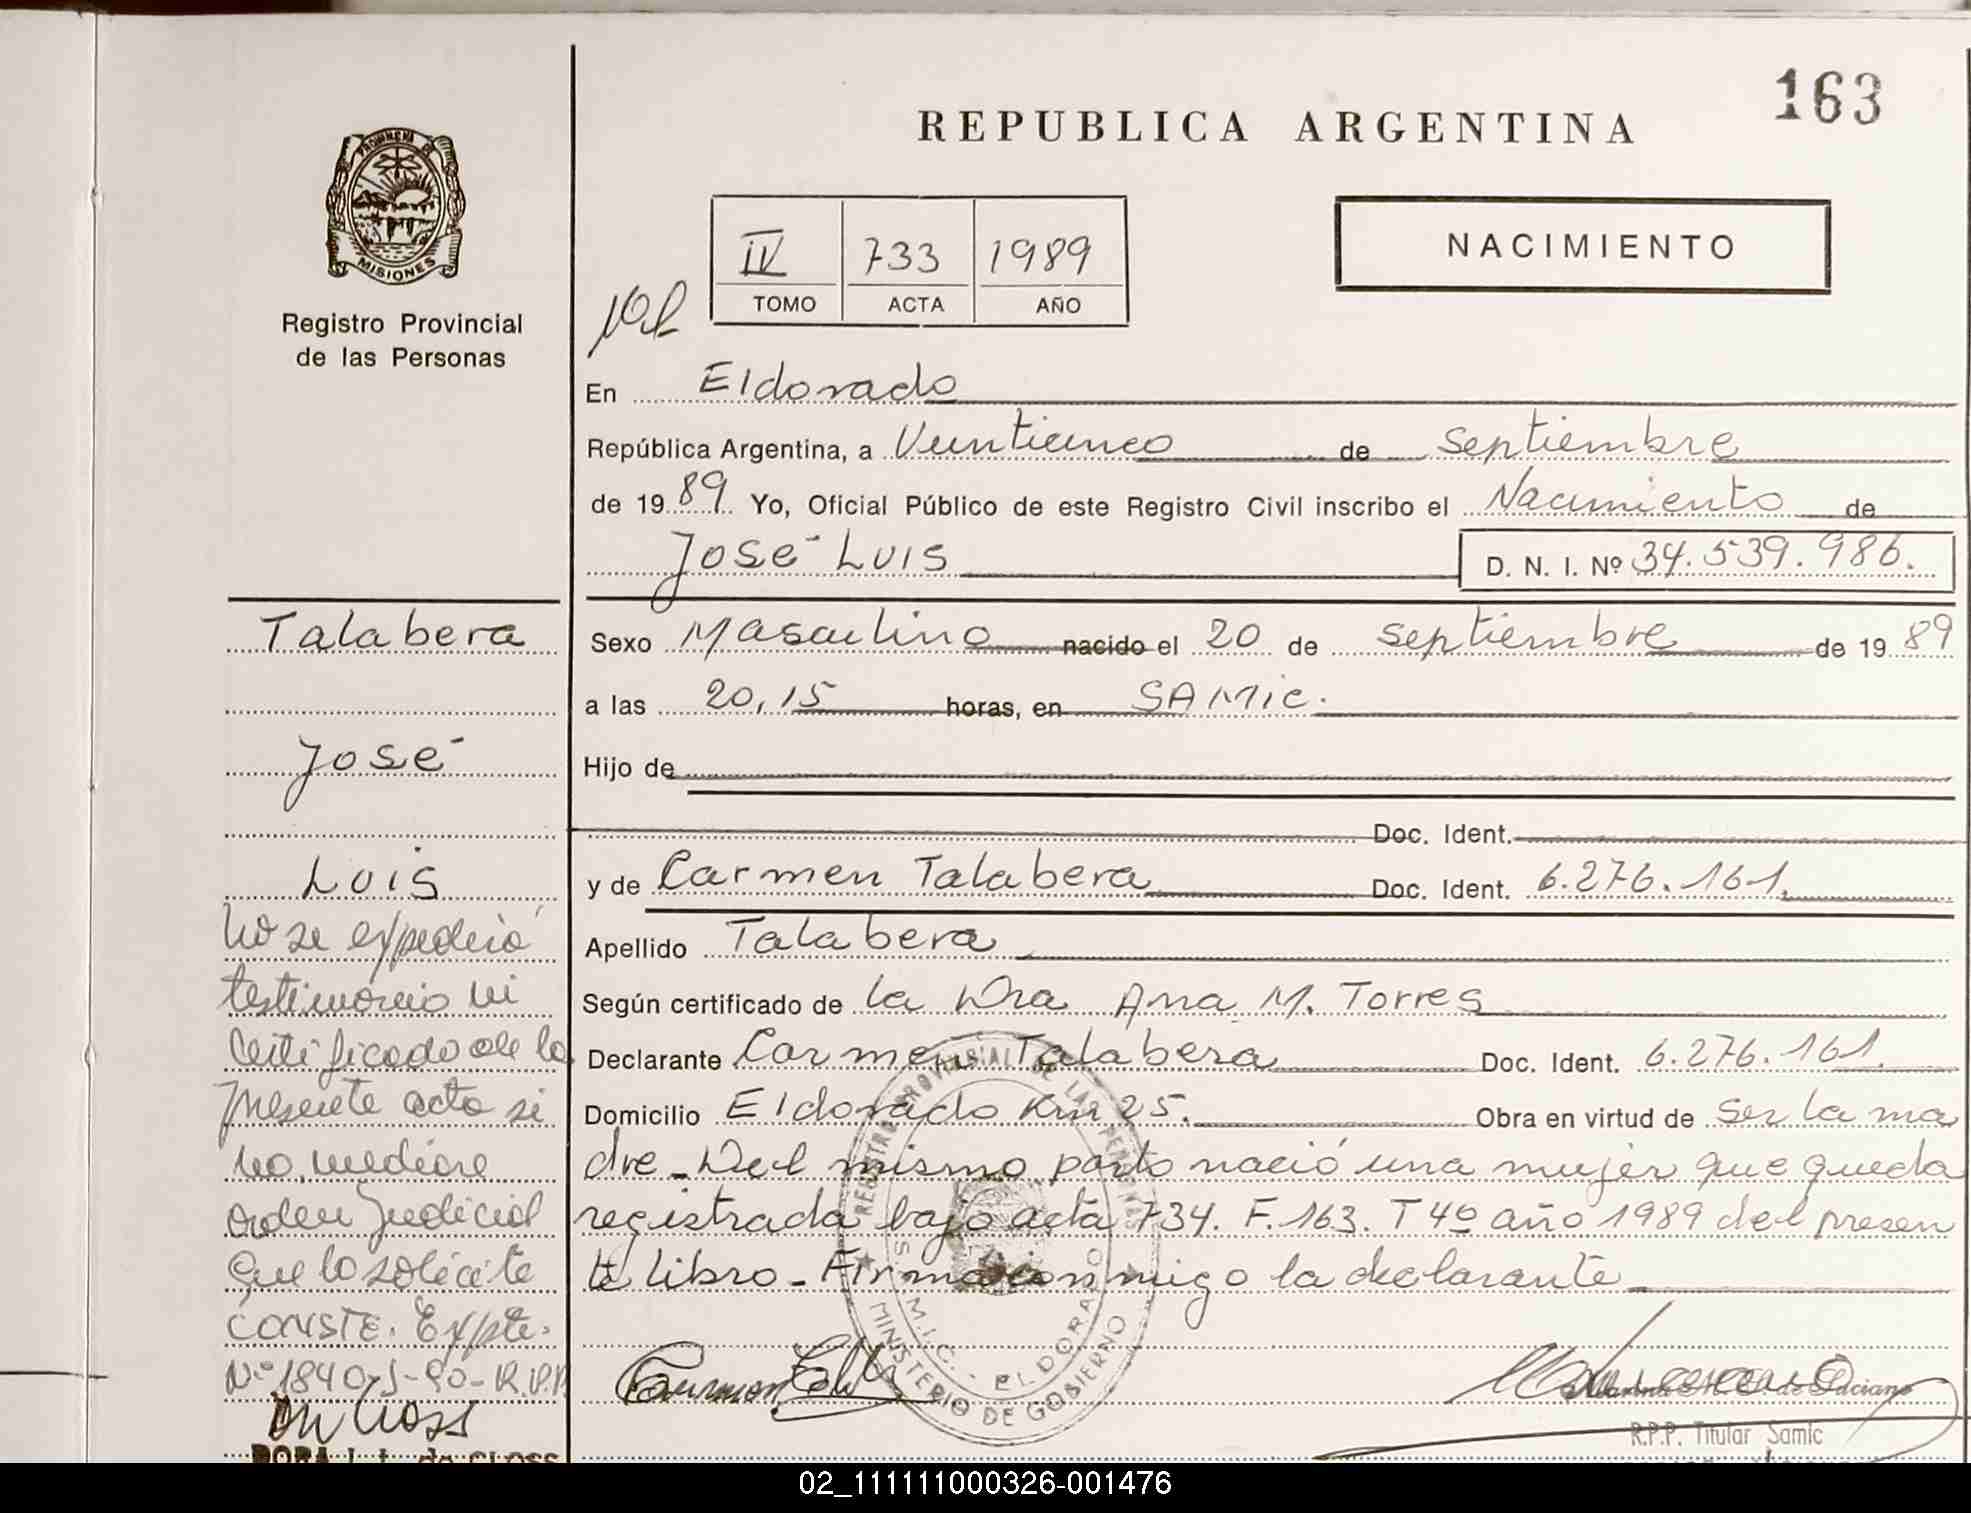 163
REPUBLICA ARGENTINA
PROVINCIA DE
MISIONES
Registro Provincial
de las Personas
IV 733 1989
TOMO ACTA AÑO
NACIMIENTO
En Eldorado
República Argentina, a Veinticinco de septiembre
de 1989 Yo, Oficial Público de este Registro Civil inscribo el Nacimiento de
José Luis D. N. I. Nº 34.539.986.
Sexo Masculino nacido el 20 de septiembre de 1989
a las 20,15 horas, en SAMic.
Hijo de
Doc. Ident.
y de Carmen Talabera Doc. Ident. 6.276.161.
Apellido Talabera
Según certificado de la Dra Ana M. Torres
Declarante Carmen Talabera Doc. Ident. 6.276.161.
Domicilio Eldorado Km 25. Obra en virtud de ser la ma
dre_ Del mismo parto nació una mujer que queda
registrada bajo acta 734. F. 163. T 4º año 1989 del presen
te libro_ Firma conmigo la declarante
Talabera
José
Luis
No se expedirá
testimonio ni
Certificado de la
presente acta si
no mediare
orden Judicial
que lo solicite
CONSTE. Expte.
Nº 1840-J-90-R.P.P.
REGISTRO PROVINCIAL DE LAS PERSONAS
S.A.M.I.C. - ELDORADO
MINISTERIO DE GOBIERNO
R.P.P. Titular Samic
de CLOSS
02_111111000326-001476